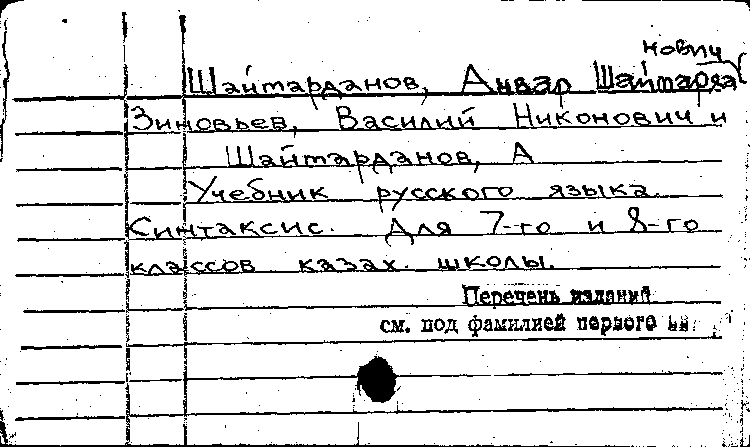 Шаймарданов, Анвар Шаймарданович
Зиновьев, Василий Никонович и
Шаймарданов, А
Учебник русского языка.
Синтаксис. Для 7-го и 8-го
классов казах. школы.
Перечень изданий
см. под фамилией первого